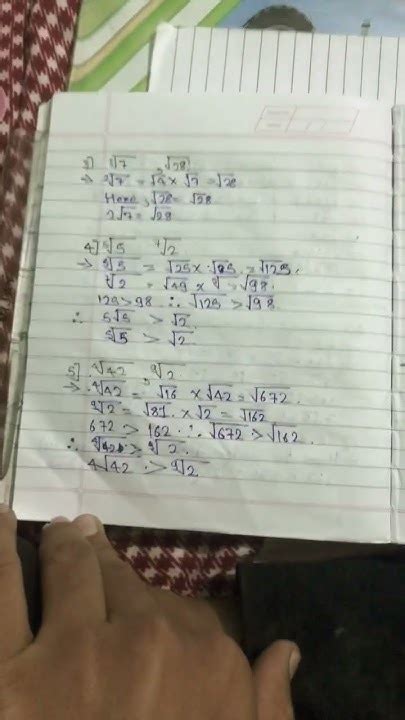 3] ²√7 , √28
→ ²√7 = √4 × √7 = √28
Here, √28 = √28
2√7 = √28
4] ⁵√5 ⁷√2
→ ⁵√5 = √25 × √5 = √125.
⁷√2 = √49 × √2 = √98.
125 > 98 ∴ √125 > √98
∴ 5√5 > √2.
⁵√5 > √2
5] ⁴√42 , ⁹√2
→ ⁴√42 = √16 × √42 = √672.
⁹√2 = √81 . × √2 = √162
672 > 162 ∴ √672 > √162.
∴ ⁴√42 > ⁹√2.
4√42 . > ⁹√2